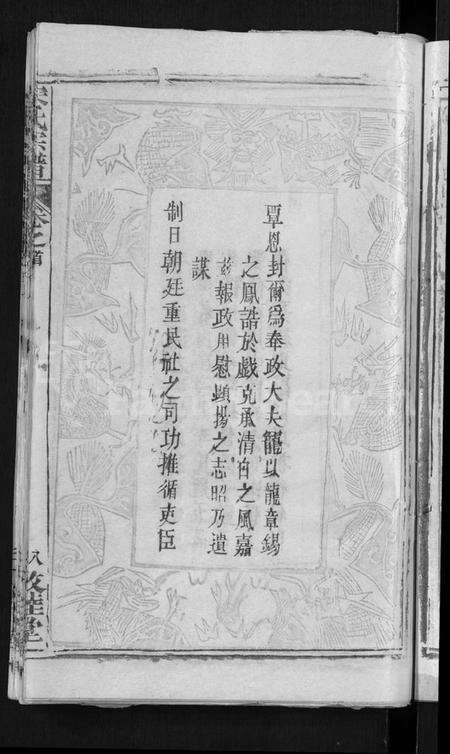 覃恩封爾爲奉政大夫寵以龍章錫
之鳳誥於戲克承清白之風嘉
茲報政用慰顯揚之志昭乃遺
謀
制曰朝廷重民社之司功推循吏臣
氏宗譜
卷之首
八